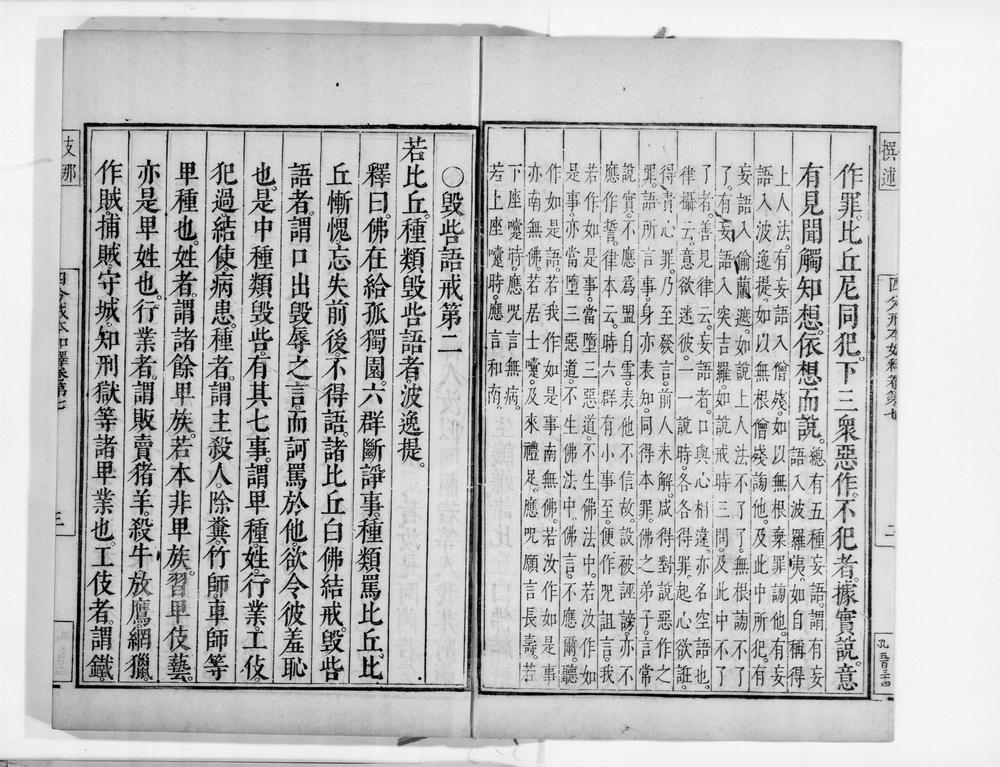 撰述
四分戒本如釋卷第七
二
孔五百三十四
作罪。比丘尼同犯。下三眾惡作。不犯者。據實說。意
有見聞觸知想。依想而說。總有五種妄語。謂有妄
語入波羅夷。如自稱得
上人法。有妄語入僧殘。如以無根棄罪謗他。有妄
語入波逸提。如以無根僧殘謗他。及此中所犯。有
妄語入偷蘭遮。如說上人法不了了。無根謗不了
了。有妄語入突吉羅。如說戒時三問。及此中不了
了者。善見律云。妄語者。口與心相違。亦名空語也。
律攝云。意欲迷彼。一一說時。各各得罪。起心欲誑。
得責心罪。乃至發言。前人未解。咸得對說惡作之
罪。語所言事。身亦表知。同得本罪。佛之弟子。言常
說實。不應爲盟自雪。表他不信故。設被誣謗。亦不
應作誓。律本云。時六群有小事至。便作呪詛言。我
若作如是事。當墮三惡道。不生佛法中。若汝作如
是事。亦當墮三惡道。不生佛法中。佛言。不應爾。聽
作如是語。若我作如是事。南無佛。若汝作如是事
亦南無佛。若居士嚏。及來禮足。應呪願言長壽。若
下座嚏時。應呪言無病。
若上座嚏時。應言和南。
○毀呰語戒第二
若比丘。種類毀呰語者。波逸提。
釋曰。佛在給孤獨園。六群斷諍事。種類罵比丘。比
丘慚愧。忘失前後。不得語。諸比丘白佛結戒。毀呰
語者。謂口出毀辱之言。而訶罵於他。欲令彼羞恥
也。是中種類毀呰。有其七事。謂卑種。姓。行業。工伎
犯過。結使。病患。種者。謂主殺人。除糞。竹師。車師等
卑種也。姓者。謂諸餘卑族。若本非卑族。習卑伎藝。
亦是卑姓也。行業者。謂販賣豬羊。殺牛放鷹。網獵
作賊。捕賊。守城。知刑獄等諸卑業也。工伎者。謂鐵。
支那
四分戒本如釋卷第七
三